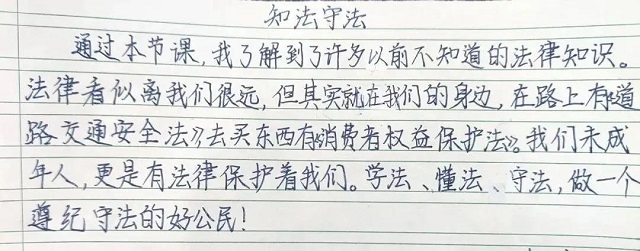 知法守法
通过本节课,我了解到了许多以前不知道的法律知识。
法律看似离我们很远,但其实就在我们的身边,在路上有《道
路交通安全法》,去买东西有《消费者权益保护法》。我们未成
年人,更是有法律保护着我们。学法、懂法、守法,做一个
遵纪守法的好公民!